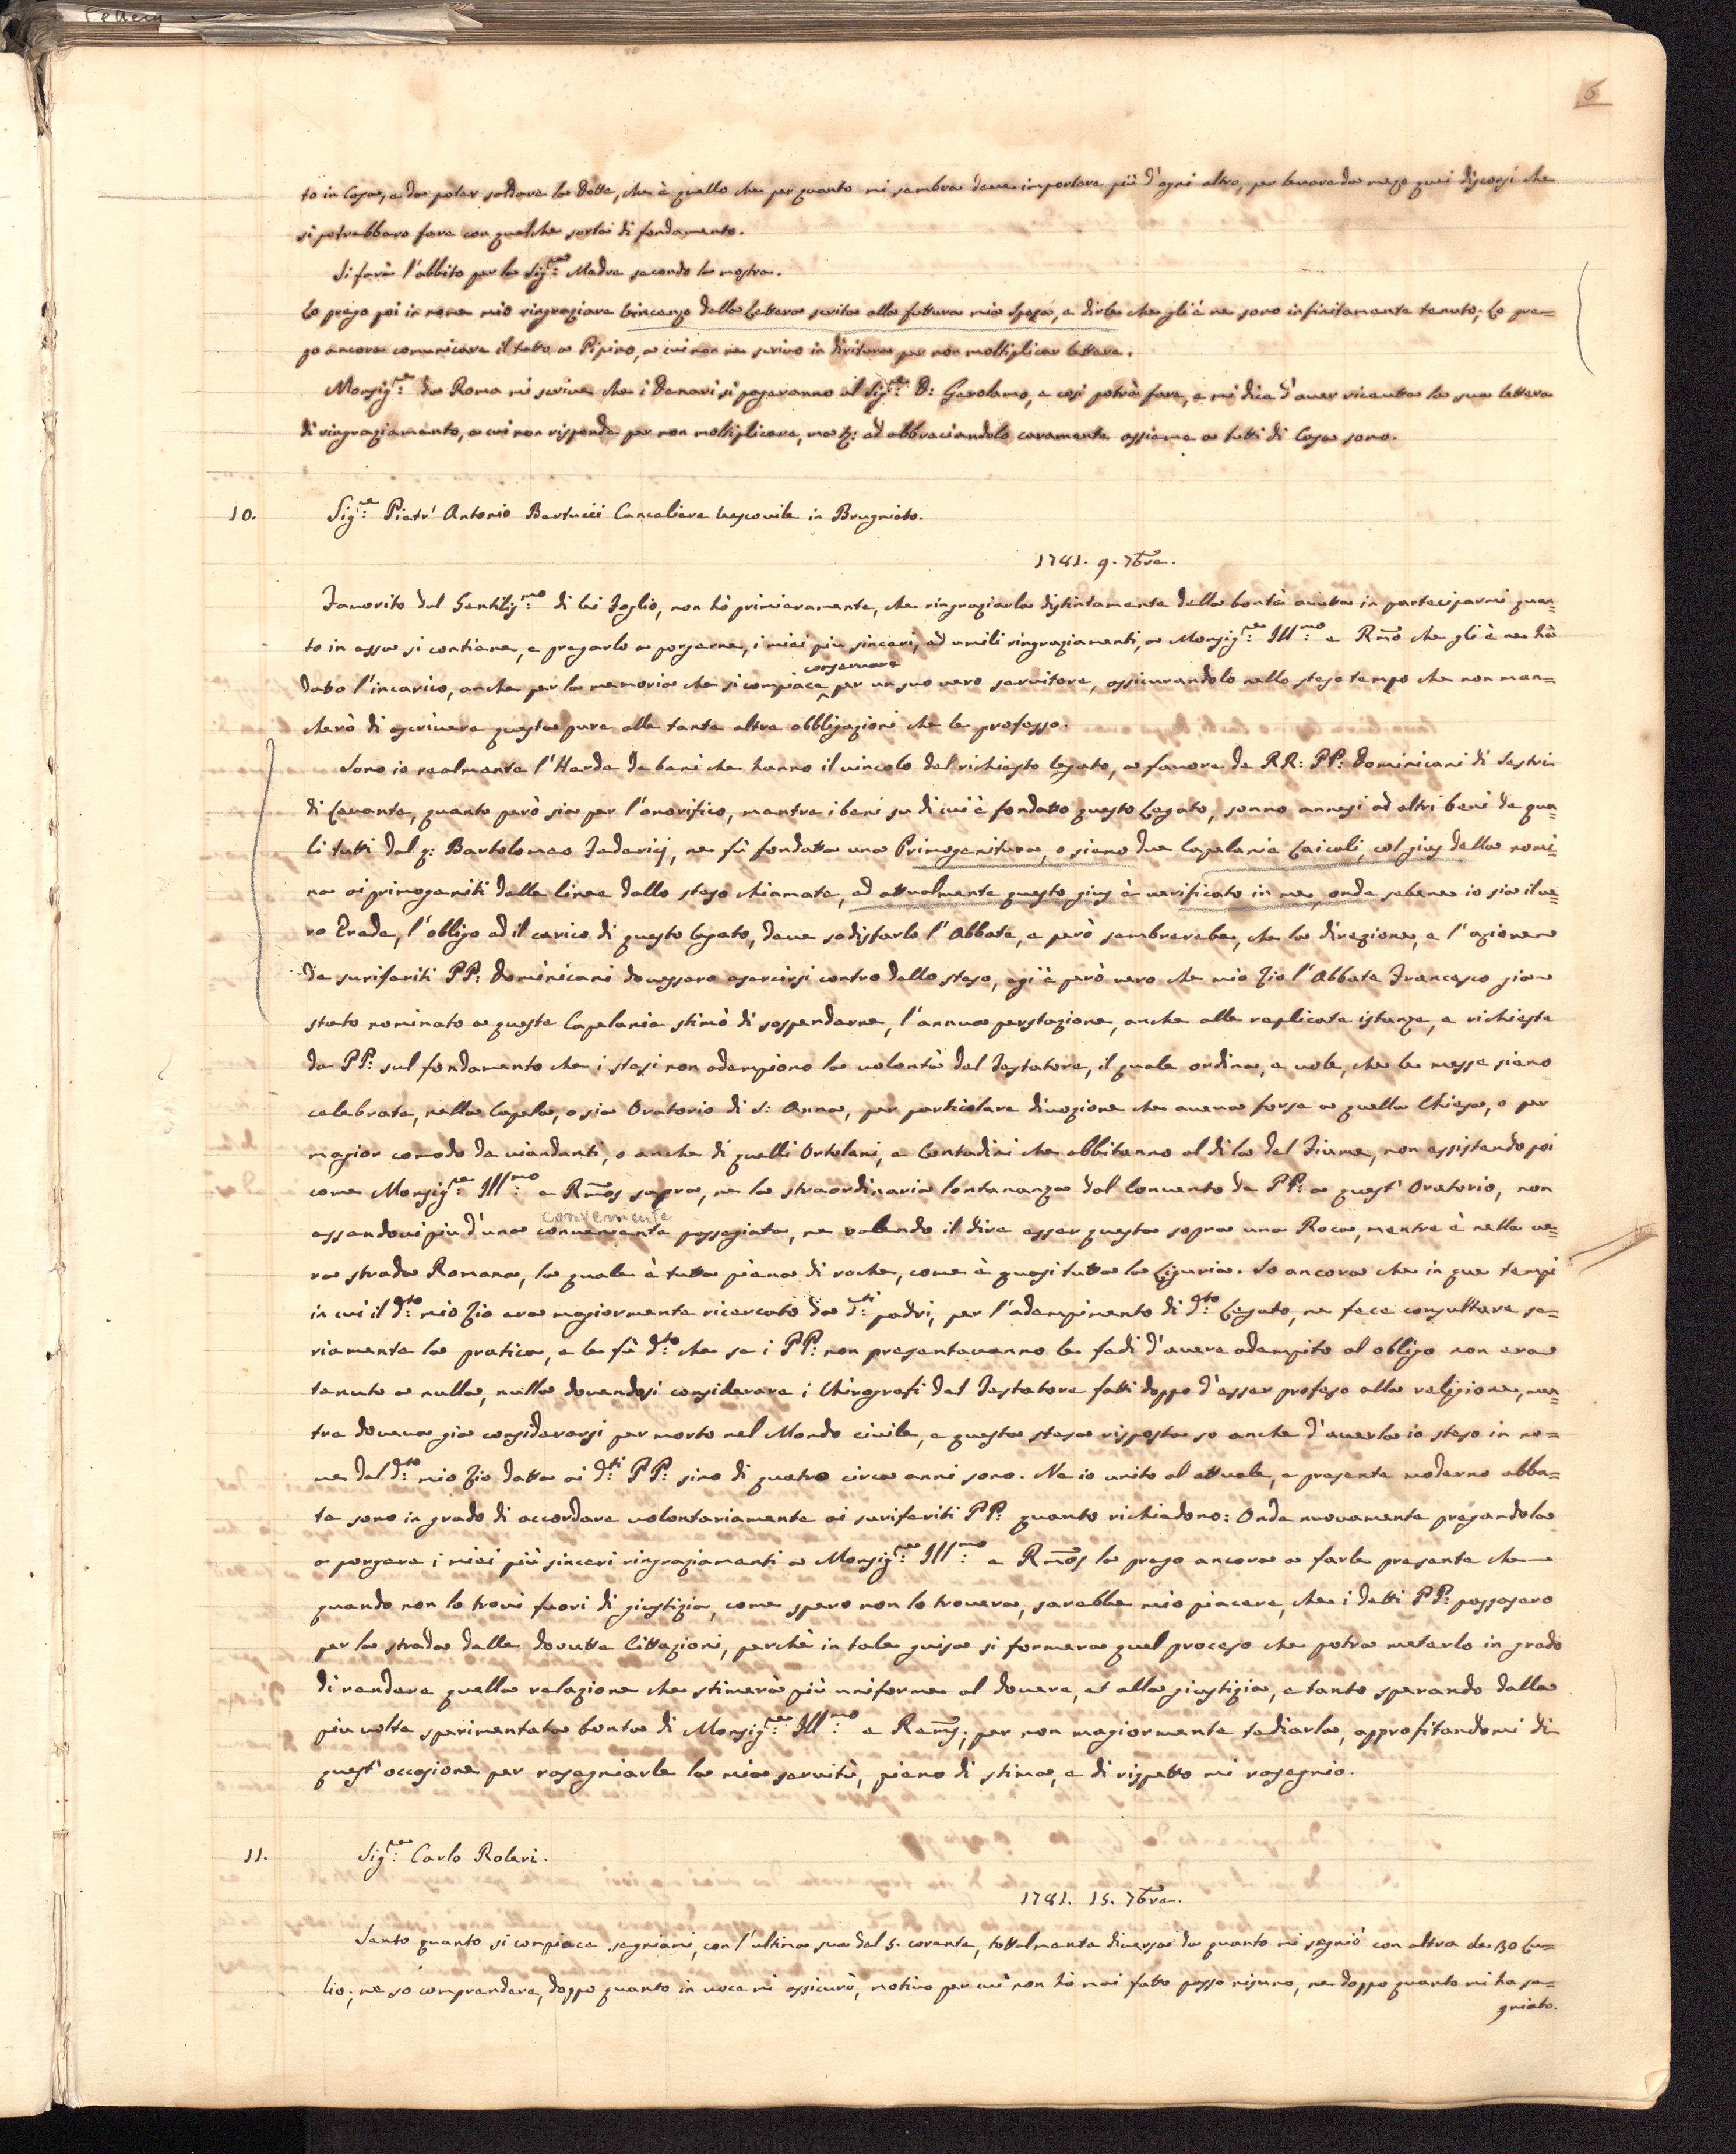 6
to in Casa, e da poter saldare la Dotte, che è quello che per quanto mi sembra deve importare più d'ogni altro, per levare da mezo quei discorsi che
si potrebbero fare con qualche sorta di fondamento.
Si farà l'abbito per la Sig.ra Madre secondo la mostra.
Lo prego poi in nome mio ringraziare Vincenzo della Lettera scrita alla futtura mia Sposa, e dirle che gli è ne sono infinitamente tenuto; Lo pre=
go ancora comunicare il tutto a Pipino, a cui non ne scrivo in diritura per non moltiplicar lettere.
Monsig.re da Roma mi scrive che i denari si pageranno al Sig.re D: Gerolamo, e cosi potrà fare, e mi dice d'aver riceutta la sua lettera
di ringraziamento, a cui non risponde per non moltiplicare, ed abbraciandolo caramente assieme a tutti di Casa sono.
10. Sig.re Pietr' Antonio Bertucci Canceliere Vescovile in Brugniato.
1781. 9. 7bre.
Favorito dal Gentilis.mo di lei Foglio, non hò primieramente, che ringraziarla distintamente della bontà avutta in parteciparmi quan=
to in esso si contiene, e pregarlo a porgerne, i miei più sinceri, ed umili ringraziamenti, a Monsig.re Ill.mo e Rmo che gli è ne hà
conservare
dato l'incarico, anche per la memoria che si compiace per un suo vero servitore, assicurandolo nello steso tempo che non man=
cherò di ascrivere questa pure alle tante altre obbligazioni che le professo.
Sono io realmente l'Herde de beni che hanno il vincolo del richiesto legato, a favore de RR: PP: Dominicani di Sestri
di Levante, quanto però sia per l'onorifico, mentre i beni su di cui è fondatto questo Legato, sonno annesi ad altri beni de qua=
li tutti dal q: Bartolomeo Federicj, ne fù fondatta una Primogenitura, o siano due Capelanie Laicali, col gius della nomi=
na ai primogeniti delle linee dallo steso chiamate, ed attualmente questo gius è verificato in me, onde sebene io sia il ve=
ro Erede, l'obligo ed il carico di questo legato, deve sodisfarlo l'Abbate, e però sembrerebe, che la direzione, e l'azione
de suriferiti PP: Dominicani dovessero esercirsi contro dello steso, egi è però vero che mio Zio l'Abbate Francesco gia
stato nominato a queste Capelanie stimò di sospenderne, l'annua perstazione, anche alle replicate istanze, e richieste
de PP: sul fondamento che i stesi non adempiono la volontà del Testatore, il quale ordina, e vole, che le messe siano
celebrate, nella Capela, o sia Oratorio di S: Anna, per particolare divozione che aveva forse a quella Chiesa, o per
magior comodo de viandanti, o anche di quelli Ortolani, e Contadini che abbitanno al di la del Fiume, non essistendo poi
come Monsig.re Ill.mo e Rmos sapra, ne la straordinaria lontananza dal Convento de PP: a quest' Oratorio, non
conveniente
essendovi più d'una convenienta passegiata, ne valendo il dire esser questa sopra una Roca, mentre è nella ve=
ra strada Romana, la quale è tutta piena di roche, come è quasi tutta la Liguria. So ancora che in que tempi
in cui il d.to mio Zio era magiormente ricercato da d.ti padri, per l'adempimento di d.to Legato, ne fece consultare se=
riamente la pratica, e le fù d.to che se i PP: non presentavanno le fedi d'avere adempito al obligo non era
tenuto a nulla, nulla dovendosi considerare i Chirografi del Testatore fatti doppo d'esser profeso alla religione, men=
tre doveva gia considerarsi per morto nel Mondo civile, e questa stesa rispposta so anche d'averla io steso in no=
me del d.to mio Zio datta ai d.ti PP: sino di quatro circa anni sono. Ne io unito al attuale, e presente moderno abba=
te sono in grado di accordare volontariamente ai suriferiti PP: quanto richiedono: Onde nuovamente pregandola
a porgere i miei più sinceri ringraziamenti a Monsig.re Ill.mo e Rmos la prego ancora a farle presente che
quando non lo trovi fuori di giustizia, come spero non lo trovera, sarebbe mio piacere, che i detti PP: passasero
per la strada delle dovutte Cittazioni, perchè in tale guisa si formera quel proceso che potra meterlo in grado
di rendere quella relazione che stimerà più uniforme al dovere, et alla giustizia, e tanto sperando dalla
piu volte sperimentata bontà di Monsig.re Ill.mo e Rems; per non magiormente tediarla, approfitandomi di
quest'occasione per rasegniarle la mia servitù, pieno di stima, e di rispetto mi rasegnio.
11. Sig.re Carlo Roleri.
1781. 15. 7bre.
Sento quanto si compiace segniarmi, con l'ultima sua del 5. corente, tottalmente diversa da quanto mi segniò con altra de 30 Lu=
lio; ne so comprendere, doppo quanto in voce mi assicurò, motivo per cui non hò mai fatto passo nisuno, ne doppo quanto mi ha se=
gniato.